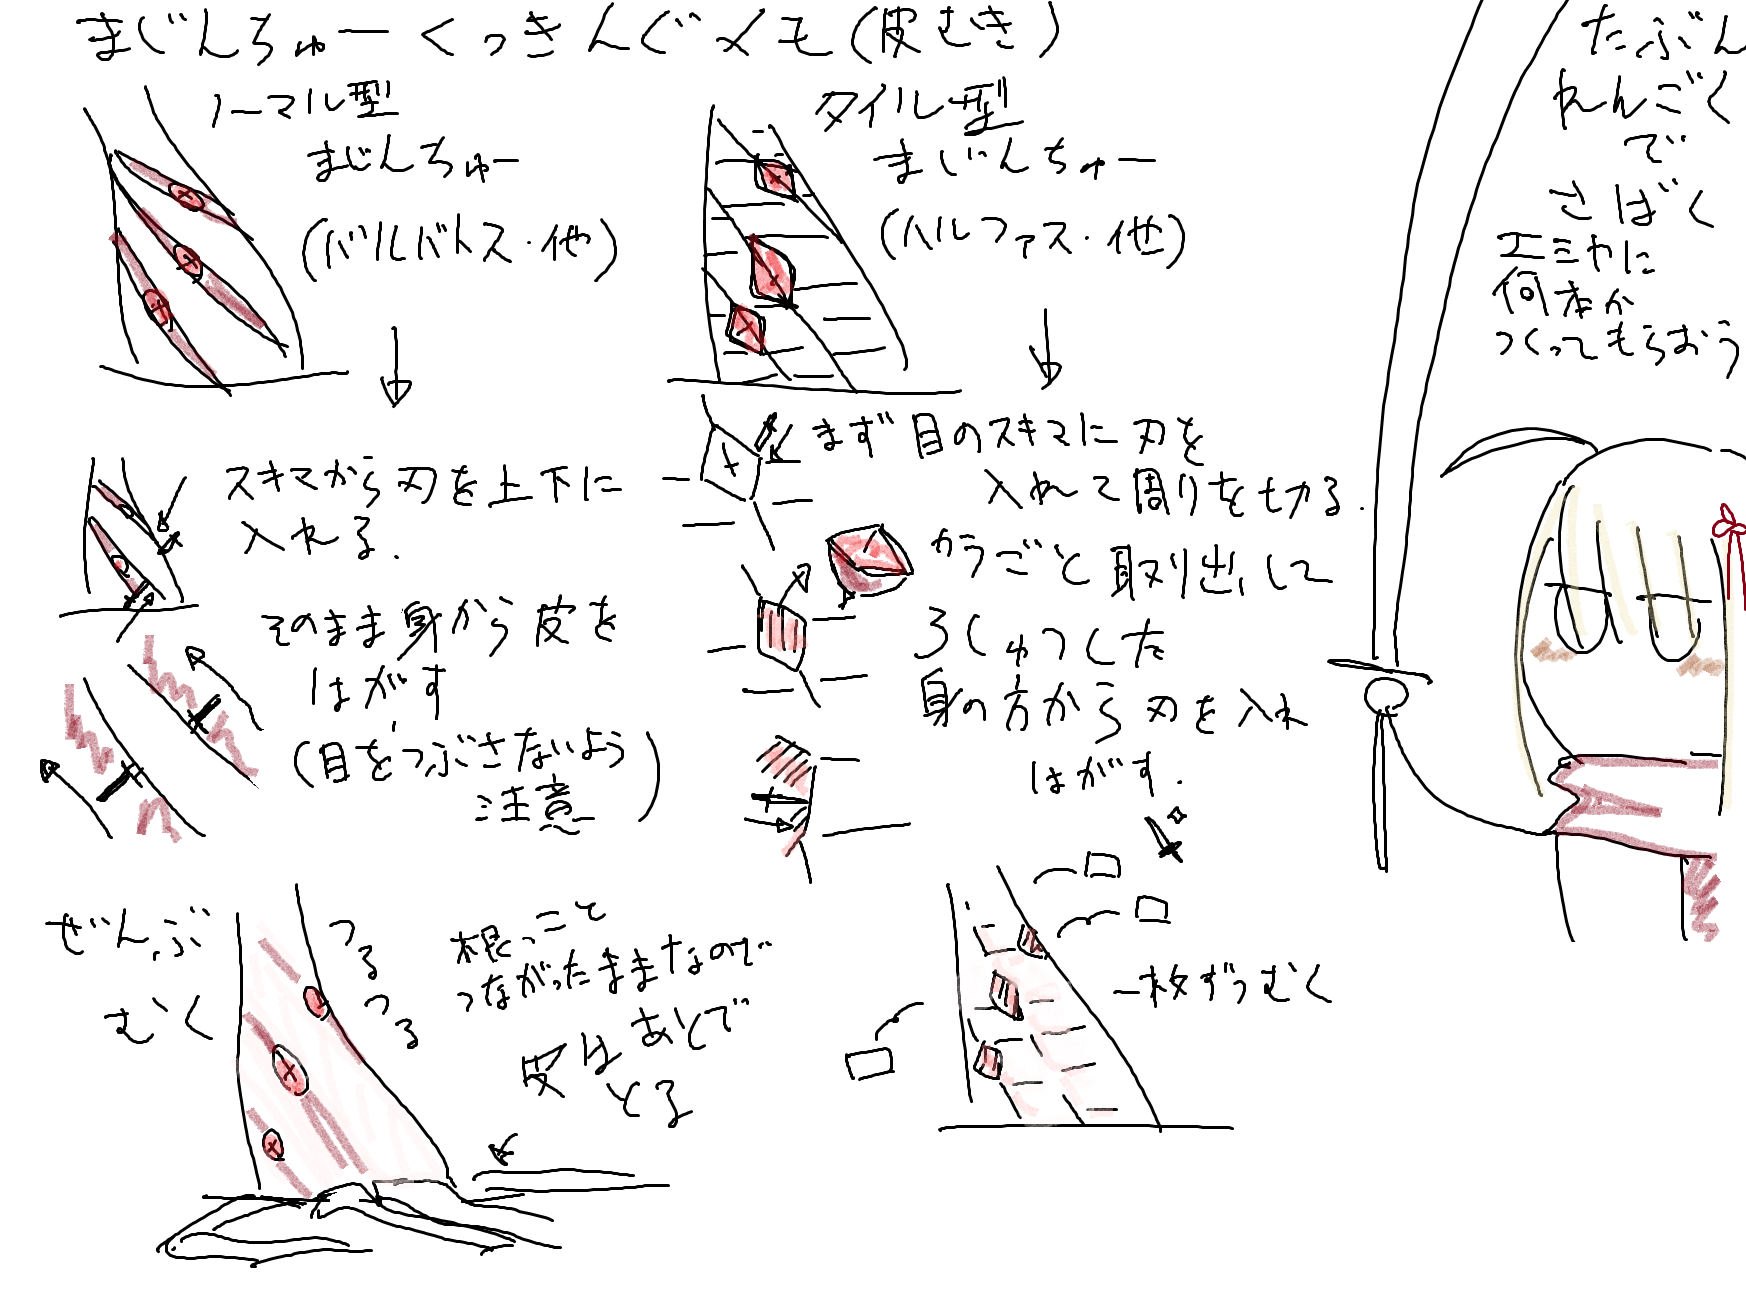 まじんちゅーくっきんぐメモ(皮むき)
ノーマル型
まじんちゅー
(バルバトス・他)
スキマから刃を上下に
入れる.
そのまま身から皮を
はがす
(目をつぶさないよう
注意)
ぜんぶ
むく
つるつる
根っこと
つながったままなので
皮はあとで
とる
タイル型
まじんちゅー
(ハルファス・他)
まず目のスキマに刃を
入れて周りを切る.
カラごと取り出して
ろしゅつした
身の方から刃を入れ
はがす.
一枚ずつむく
たぶん
れんごく
で
さばく
エミヤに
何本か
つくってもらおう